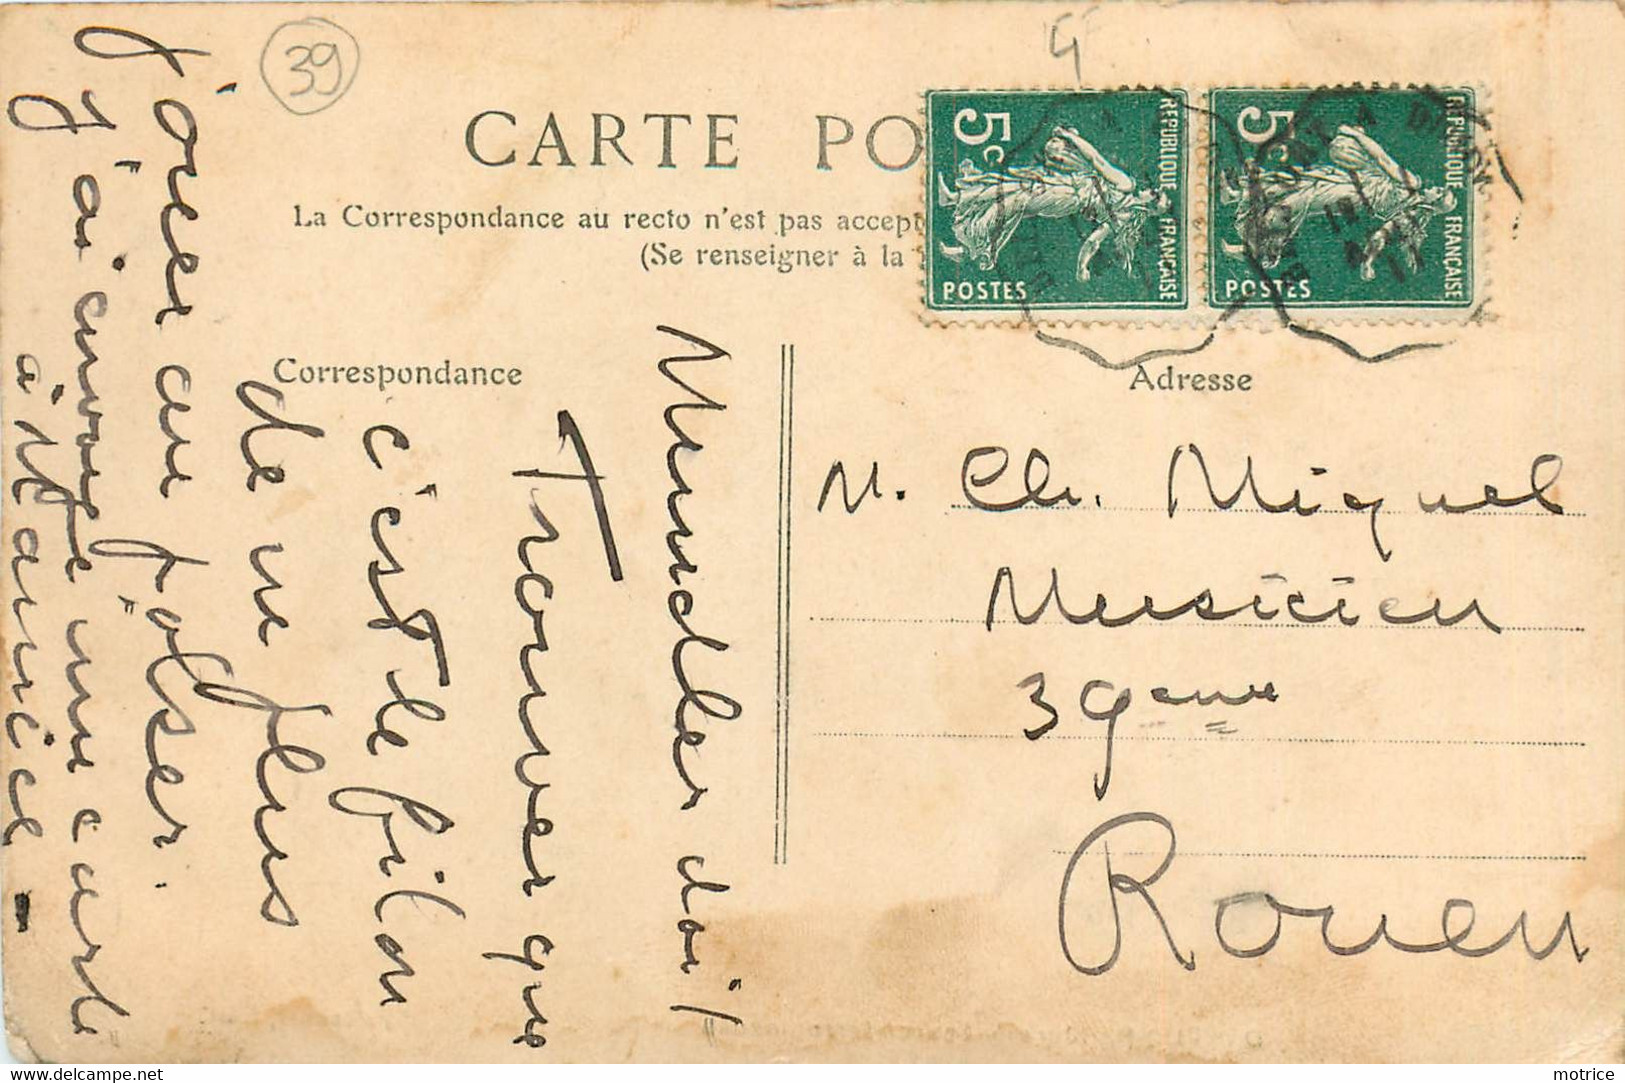 39
CARTE PO
La Correspondance au recto n'est pas accept
(Se renseigner à la
5c
REPUBLIQUE FRANÇAISE
POSTES
5c
REPUBLIQUE FRANÇAISE
POSTES
Correspondance
Adresse
doit
Trouver que
c'est le filon
de ne plus
jouer au
J'ai envoyé une carte
à Maurice -
M. Ch. Miquel
Musicien
39eme
Rouen
delcampe.net
motrice